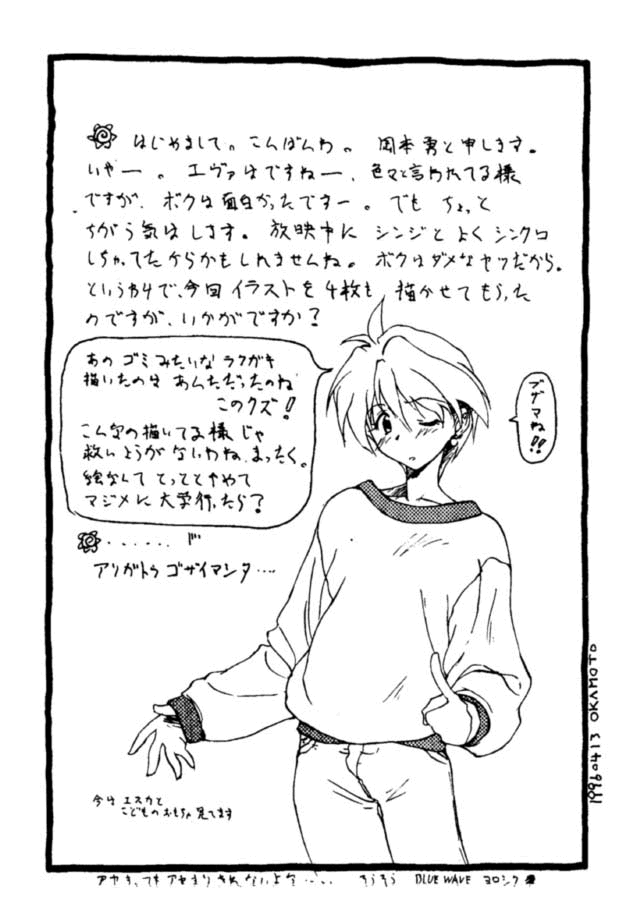 はじめまして。こんばんわ。岡本勇と申します。
いやー。エヴァはですねー、色々と言われてる様
ですが、ボクは面白かったですー。でもちょっと
ちがう気はします。放映中にシンジとよくシンクロ
しちゃってたからかもしれませんね。ボクはダメなヤツだから。
というわけで、今回イラストを4枚も描かせてもらった
のですが、いかがですか?
あのゴミみたいなラクガキ
描いたのはあんただったのね
このクズ!
こんなの描いてる様じゃ
救いようがないわね、まったく。
絵なんてとっととやめて
マジメに大学行ったら?
ブザマね!!
・・・・・・
アリガトウゴザイマシタ・・・・
今はエスカと
こどものおもちゃ見てます
19960413 OKAMOTO
そうそう BLUE WAVE ヨロシク